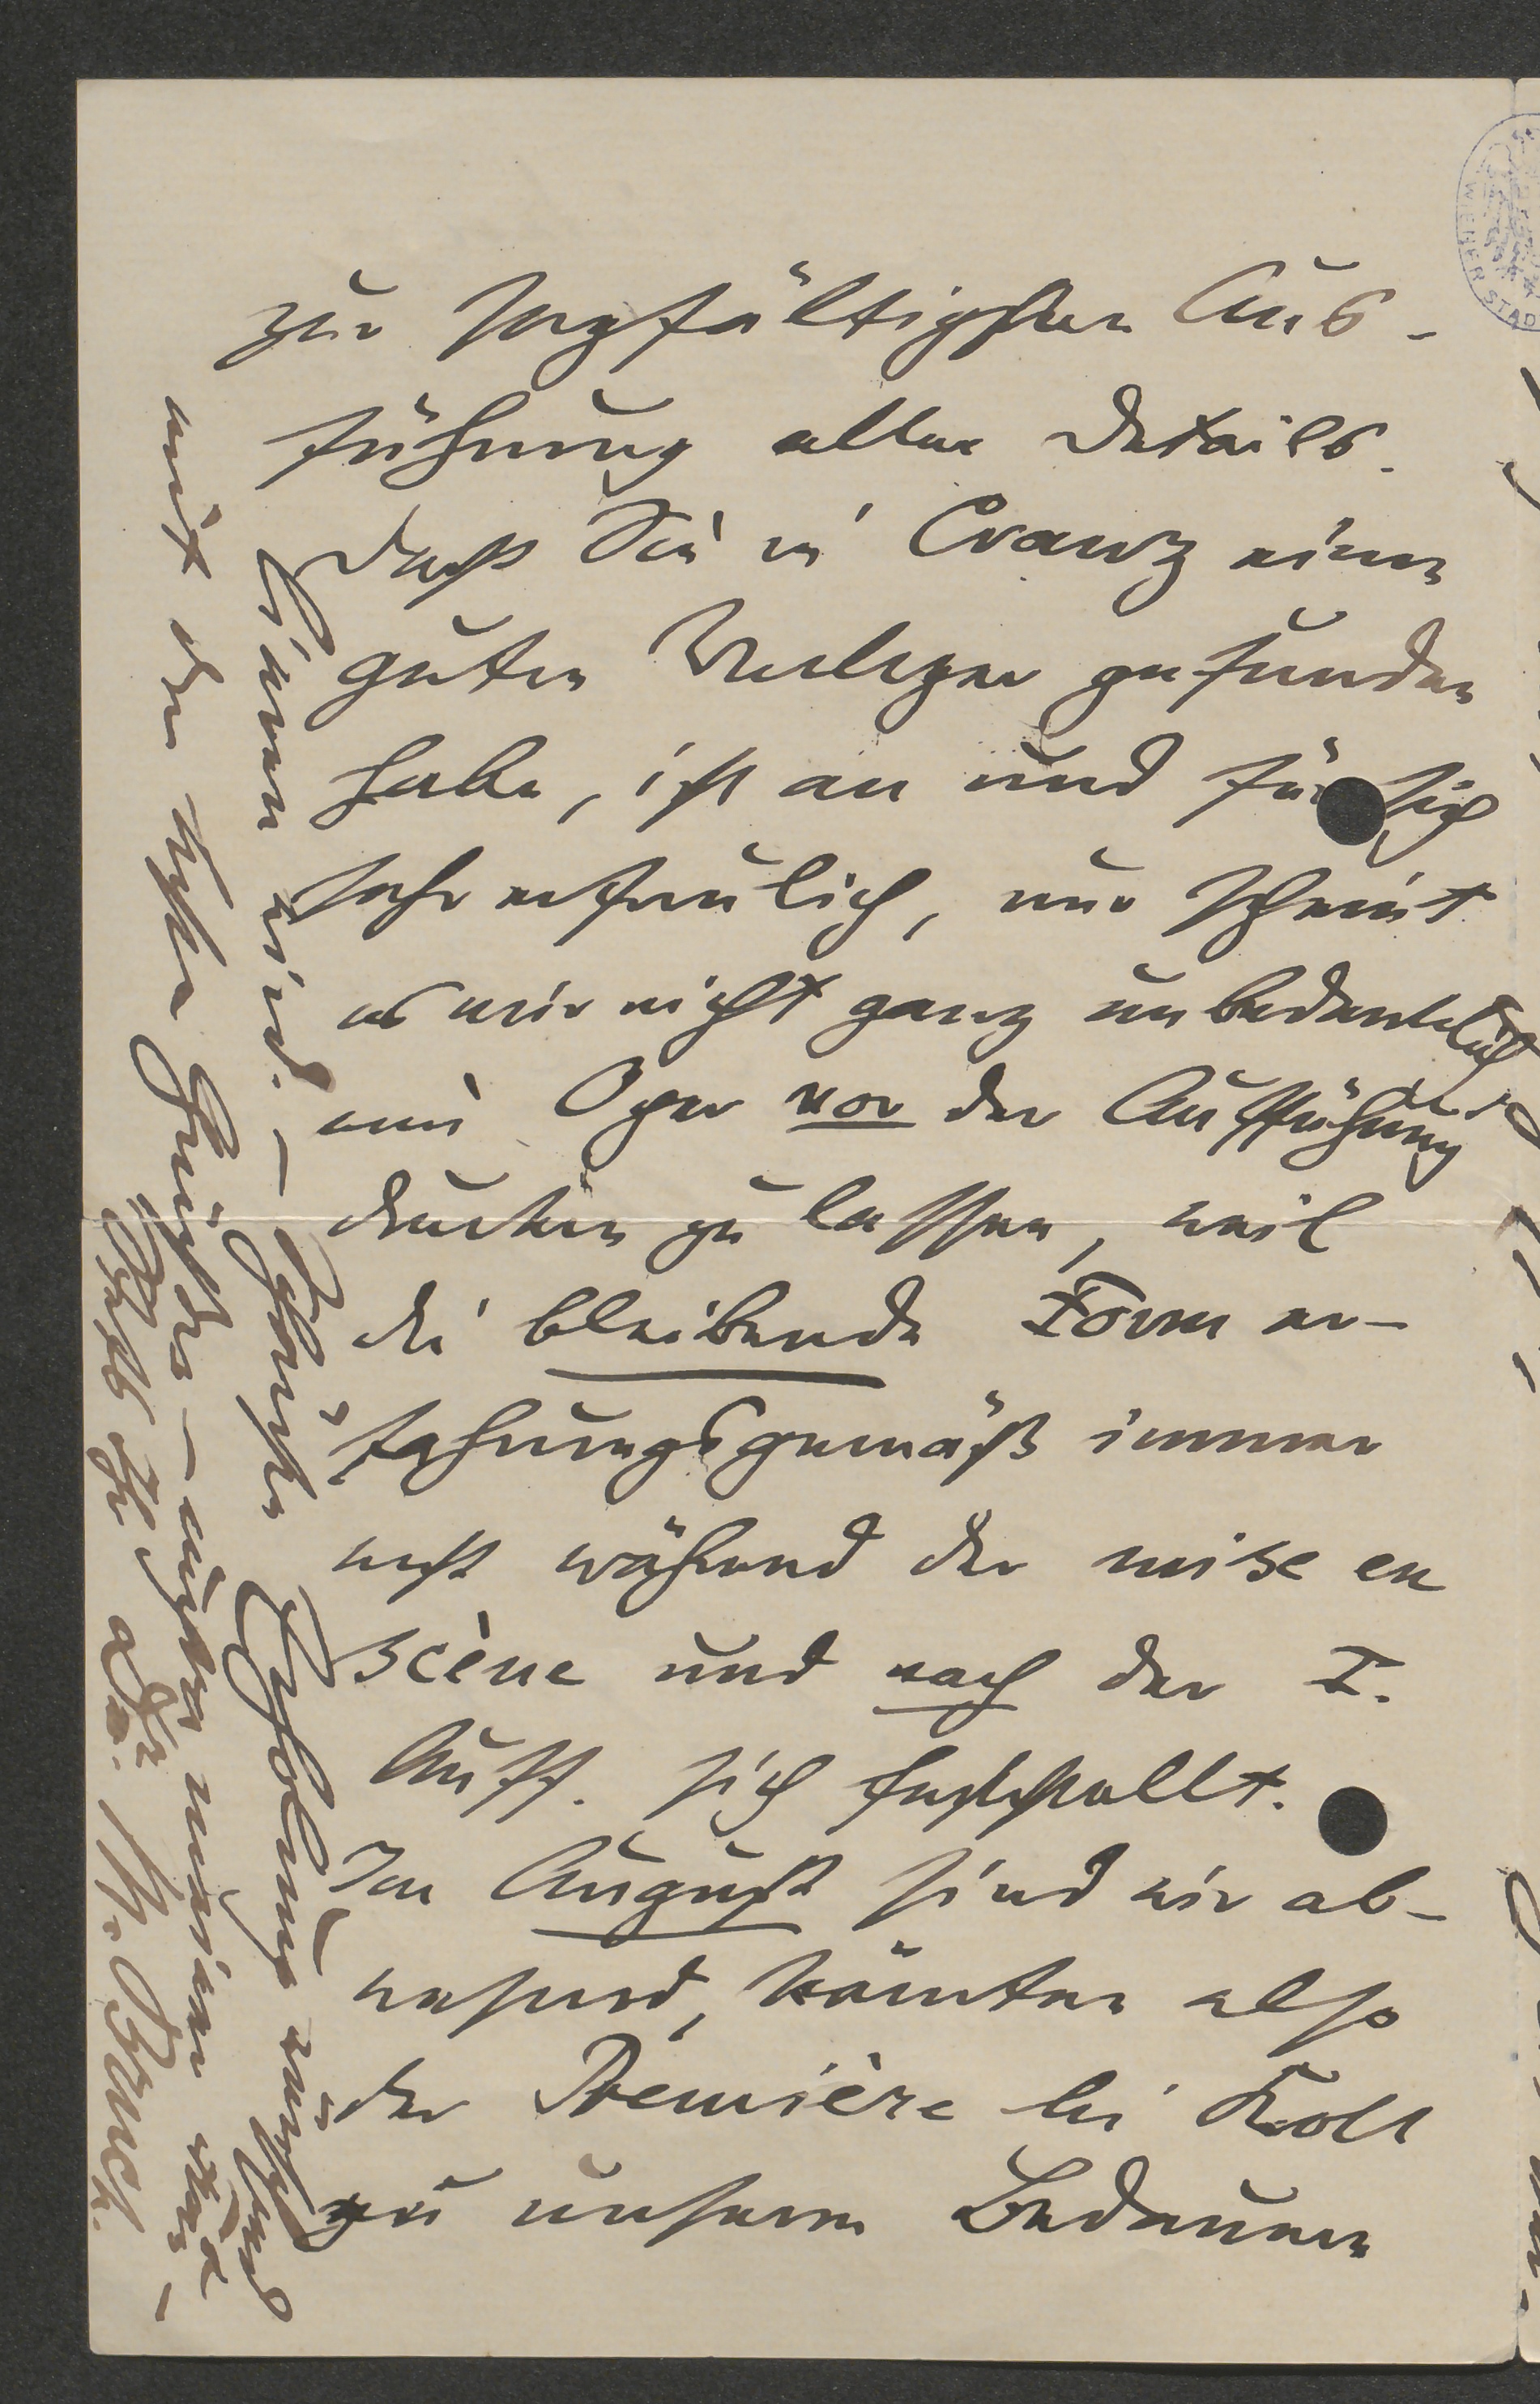 zur sorgfältigsten Aus-
führung aller Details.
Daß Sie in Cranz einen
guten Verleger gefunden
habe, ist an und für sich
sehr erfreulich, nur scheint
es mir nicht ganz unbedenklich
eine Oper vor der Aufführung
drucken zu lassen, weil
die bleibende Form er-
fahrungsgemäß immer
erst während der mise en
scène und nach der I.
Auff. sich feststellt.
Im August sind wir ab-
wesend, könnten also
der Première bei Kroll
zu unserem Bedauern
Erholung wünscht und
mit den besten Grüßen
Ihr
Dr. H. Bruck.
WIENER STAD